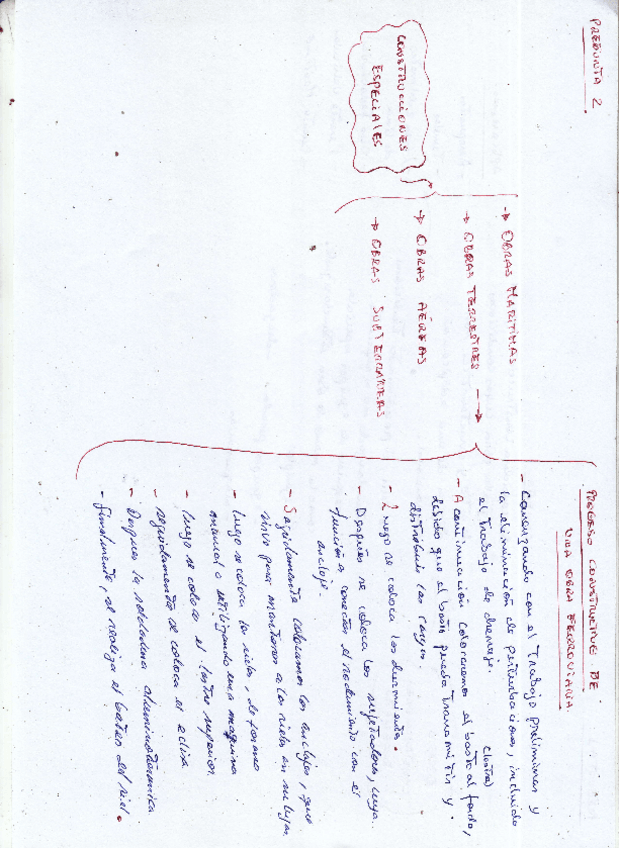 PREGUNTA 2
CONSTRUCCIONES
ESPECIALES
→ OBRAS MARITIMAS
→ OBRAS TERRESTRES →
→ OBRAS AÉREAS
→ OBRAS SUBTERRANEAS
PROCESO CONSTRUCTIVO DE
UNA OBRA FERROVIARIA.
- Comenzando con el Trabajo preliminar y
la eliminación de perturbaciones, incluido
el trabajo de drenaje.
(lastre)
- A continuación colocaremos el basto al fondo,
debido que el basto pueda transmitir y
distribuir las cargas.
- Luego se coloca los durmientes.
- Después se coloca los sujetadores, cuya
función es conectar el rodamiento con el
anclaje.
- Seguidamente colocamos los anclajes, que
sirve para mantener a los rieles en su lugar.
- Luego se coloca los rieles, de forma
manual o utilizando una maquina
- Luego se coloca el lastre superior.
- seguidamente se coloca el eclisa
- Despues la soldadura aluminotérmica
- finalmente, se realiza el bateo del riel.